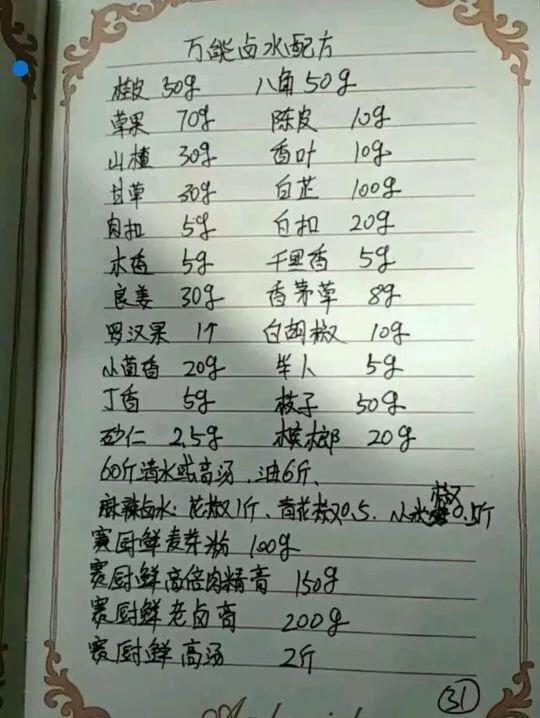 万能卤水配方
桂皮 30g 八角 50g
草果 70g 陈皮 10g
山楂 30g 香叶 10g
甘草 30g 白芷 100g
肉扣 5g 白扣 20g
木香 5g 千里香 5g
良姜 30g 香茅草 8g
罗汉果 1个 白胡椒 10g
小茴香 20g 毕卜 5g
丁香 5g 枝子 50g
砂仁 2.5g 槟榔 20g
60斤清水或高汤,油6斤、
麻辣卤水:花椒1斤、青花椒0.5. 小米椒0.5斤
赛厨鲜麦芽粉 100g
赛厨鲜高倍肉精膏 150g
赛厨鲜老卤膏 200g
赛厨鲜高汤 2斤
31